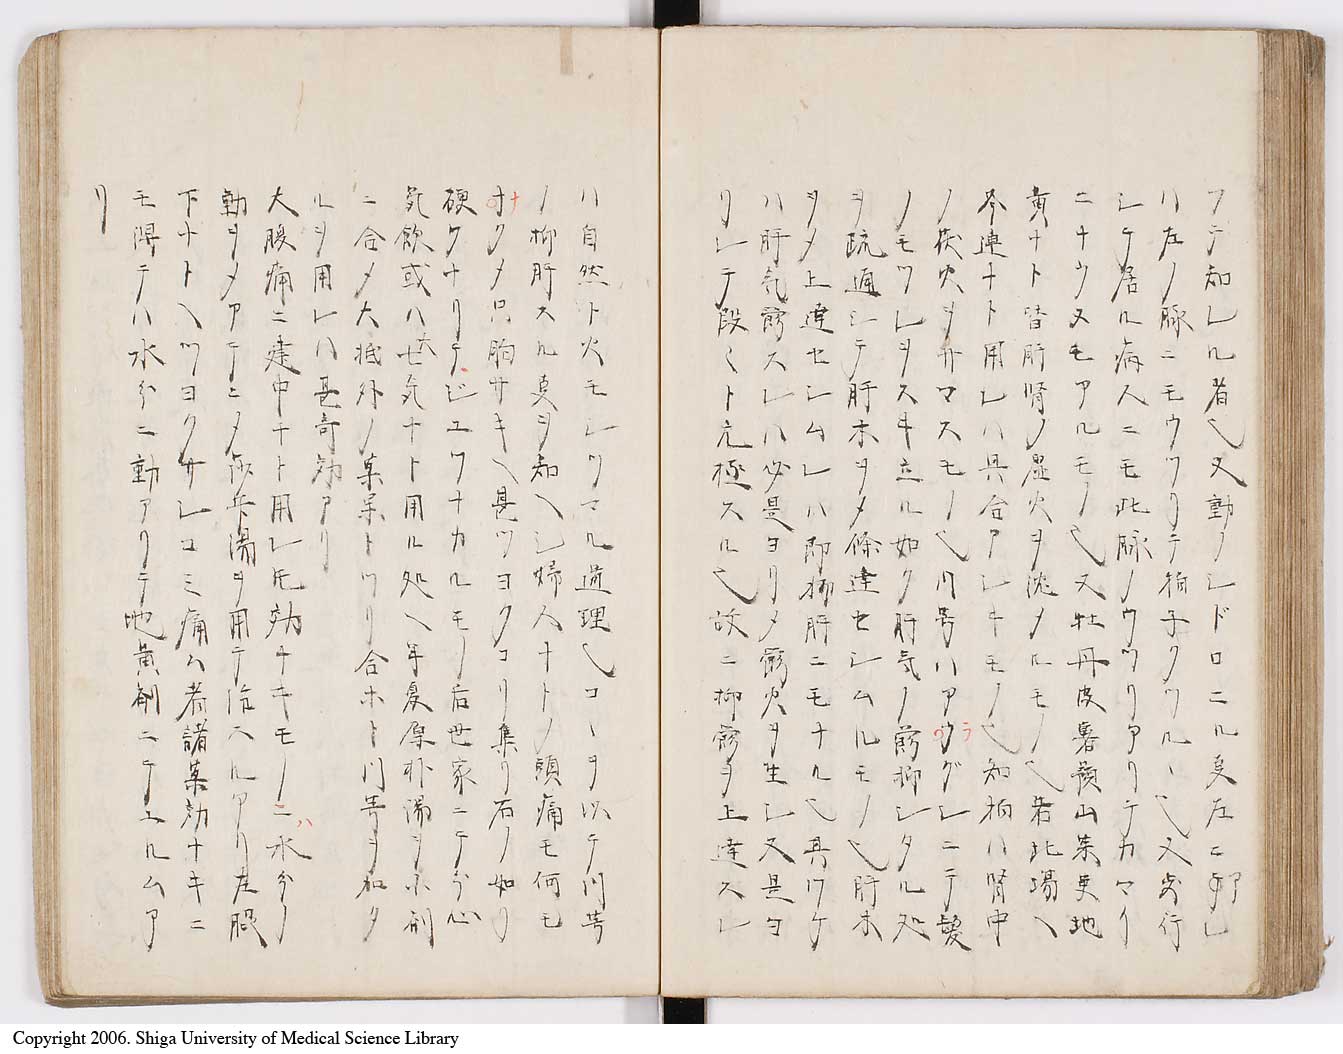 フテ知レル者也又動ノシドロニル

ハ左ノ脉ニモウツリテ狗子クツル丶也又歩行
シテ居ル病人ニモ此脉ノウツリアリテカマリ
ニナウヌモアルモノ也又牡丹皮暑蕷山茱萸地
黄ナト皆肝腎ノ湿火ヲ洩メルモノ也若此場ヘ
芩連ナト用レハ具合アシキモノ也知柏ハ腎中
ノ伏火ヲサマスモノ也川芎ハアラグシニテ髪
ノモツレヲスキ立ル如ク肝気ノ鬱抑シタル処
ヲ疏通シテ肝木ヲメ條達セシムルモノ也肝木
ヲメ上達セシムレハ即抑肝ニモナル也其ワケ
ハ肝気鬱スレハ必是ヨリメ鬱火ヲ生シ又是ヨ
リシテ段々ト亢極スル也故ニ抑鬱ヲ上達スレ
ハ自然ト火モシツマル道理也コヽヲ以テ川芎
ノ抑肝スル叓ヲ知ヘシ婦人ナトノ頭痛モ何モ
ナクメ只胸サキヘ甚ツヨクコリ集リ石ノ如ク
硬クナリテジユツナカルモノ后世家ニテ分心
気飲或ハ七気ナト用ル処ヘ半夏厚朴湯ヲ小剤
ニ合メ大抵外ノ薬ト釣リ合ホト川芎ヲ加タ
ルヲ用レハ甚奇効アリ
大腹痛ニ建中ナト用レ共効ナキモノハ水分ノ
動ヲメアテニメ
湯ヲ用テ治スルアリ左臍
下ナトヘツヨクサシコミ痛ム者諸薬効ナキニ
モ得テハ水分ニ動アリテ地黄剤ニテユルムア
リ